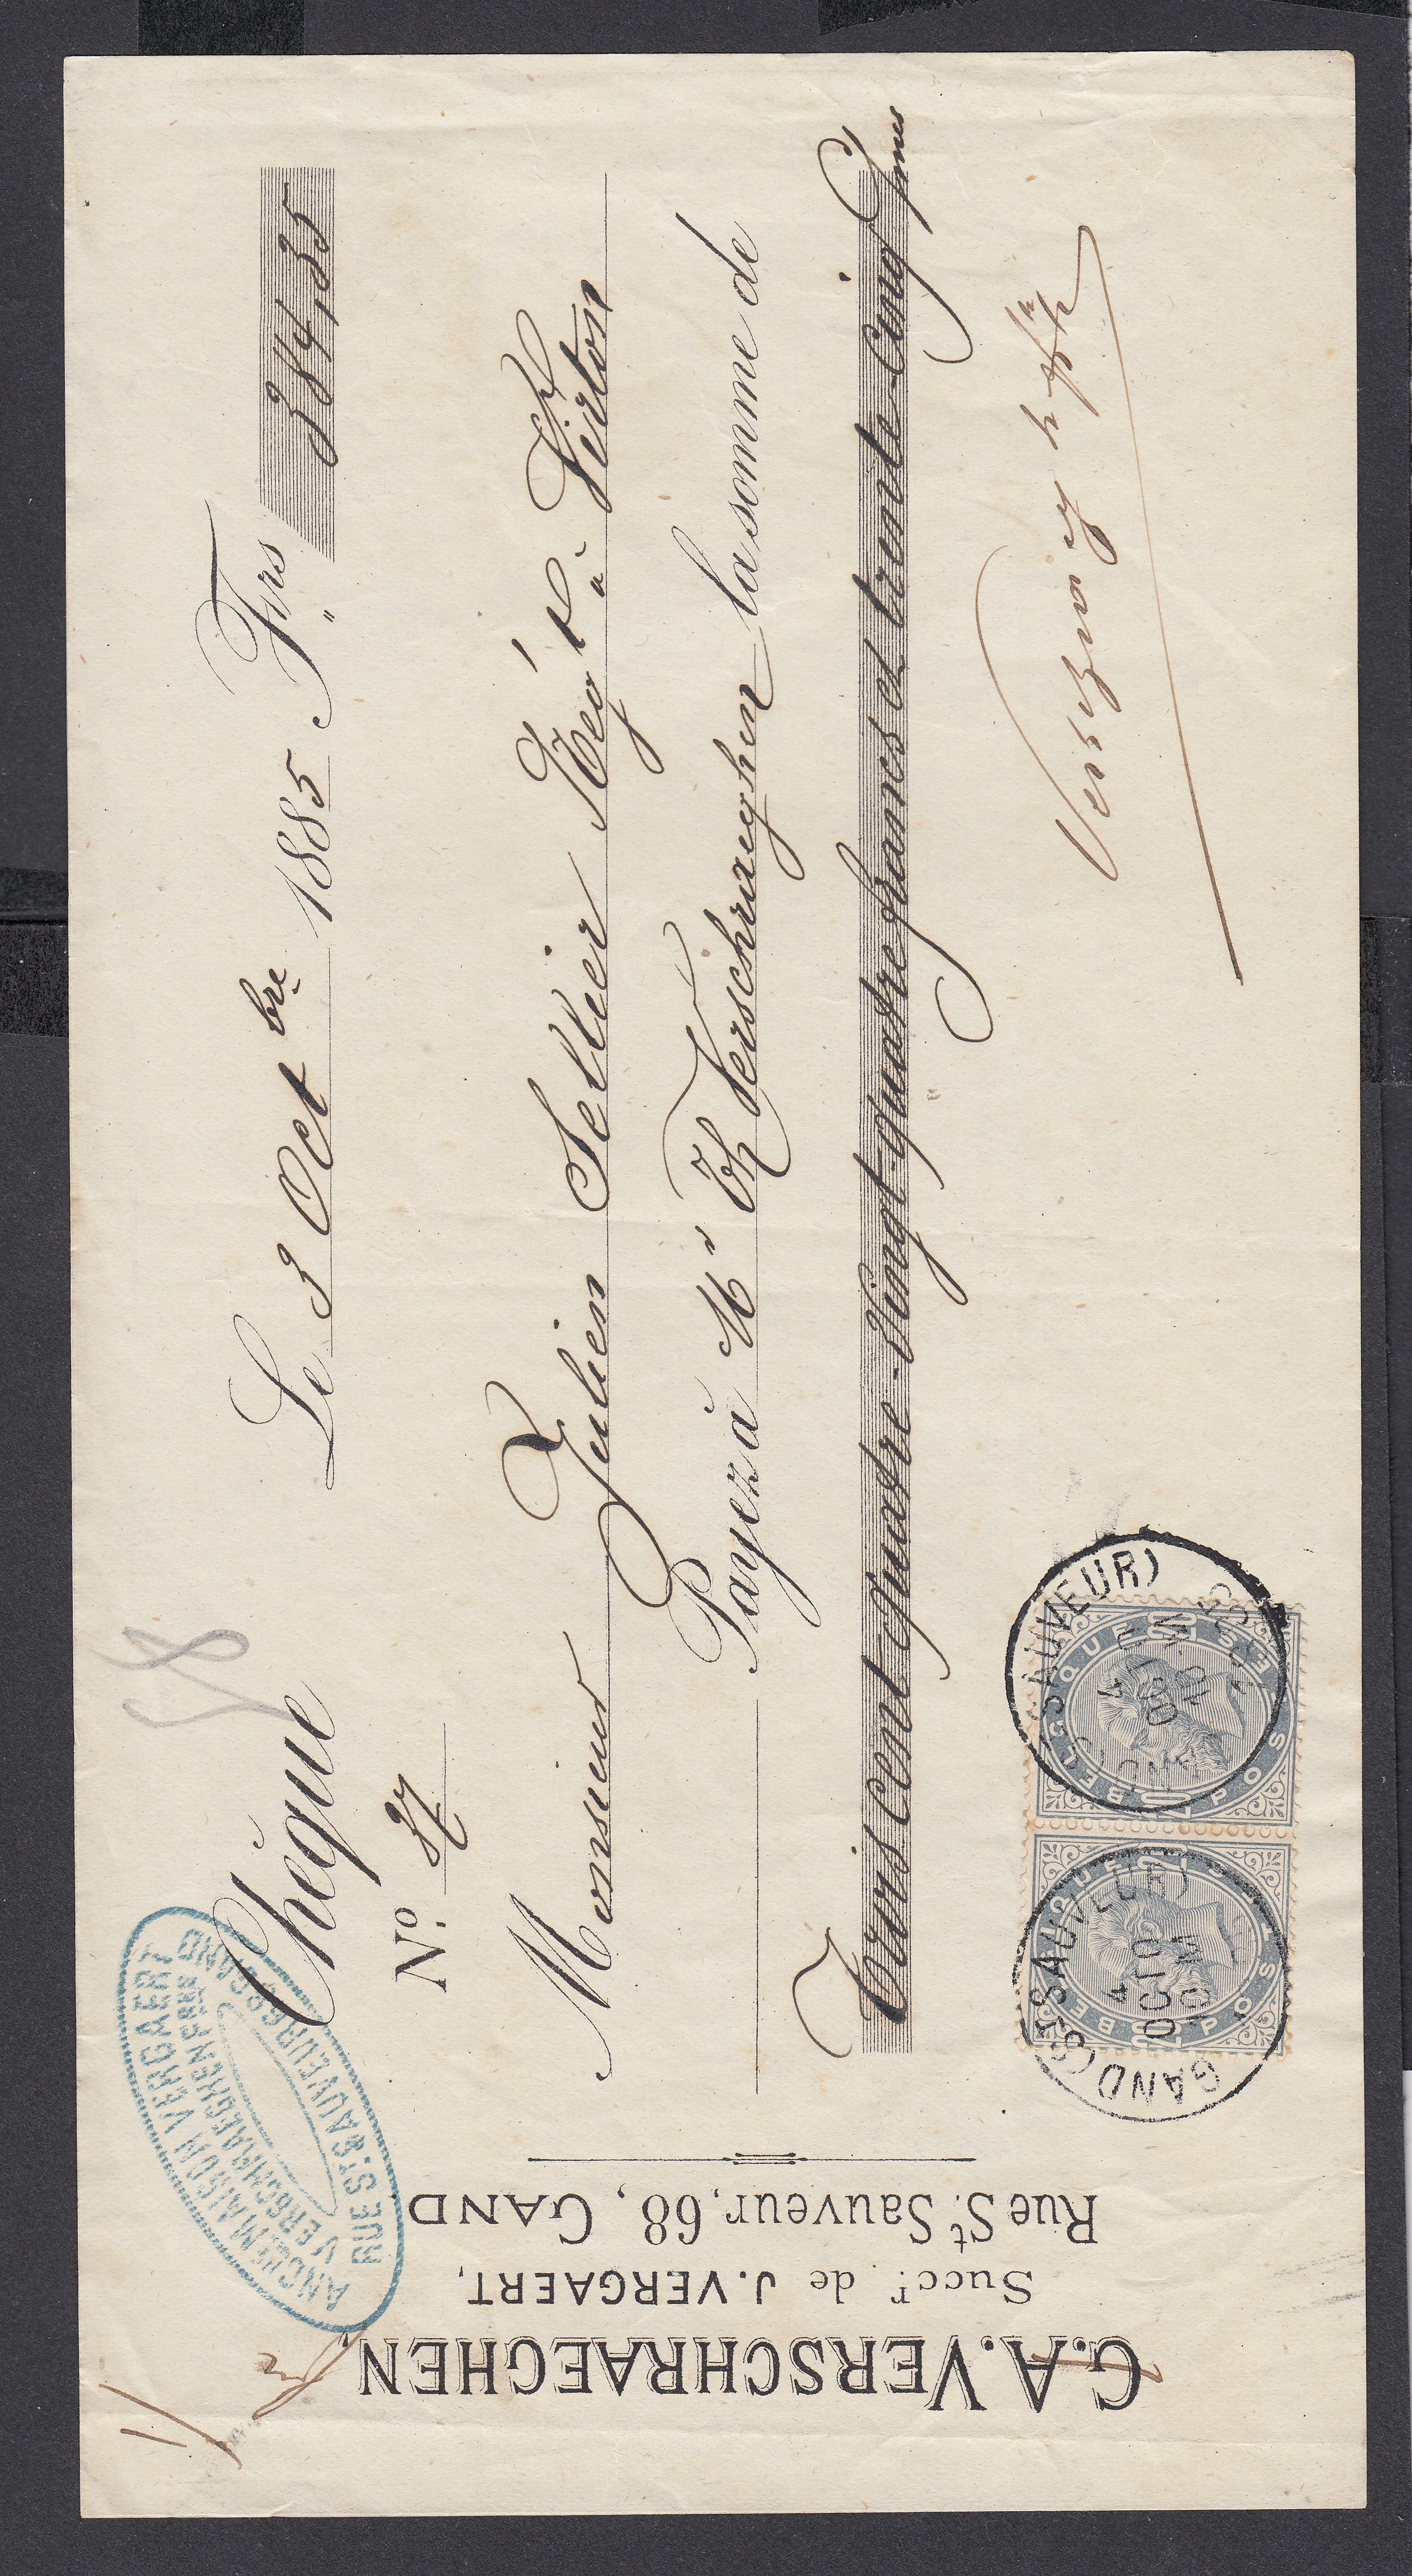 G.A. VERSCHRAEGHEN
Succr. de J. VERGAERT,
Rue St Sauveur, 68, GAND
ANCNE MAISON VERGAERT
VERSCHRAEGHEN
RUE ST SAUVEUR 68 GAND
58
Chèque
No. 87
Le 3 Octbre 1885 Frs 384,35
Monsieur Julien Sellier Négt à Virton
Payez à Mr Th Verschraeghen la somme de
Trois cent quatre-Vingt-quatre francs et trente-Cinq Cmes
GAND (ST SAUVEUR)
4
OCTO
10-M
1885
GAND (ST SAUVEUR)
4
OCTO
10-M
BELGIQUE
POSTES
BELGIQUE
POSTES